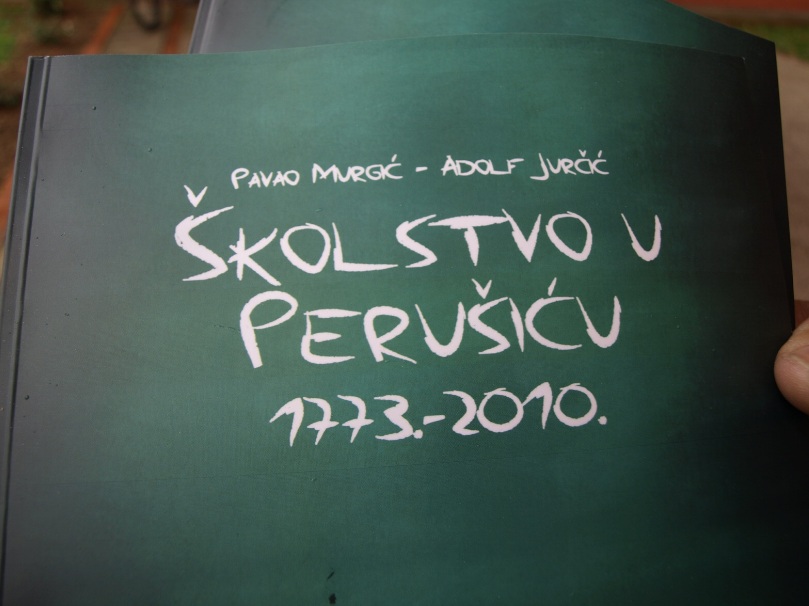 PAVAO MURGIĆ - ADOLF JURČIĆ
ŠKOLSTVO U
PERUŠIĆU
1773.-2010.